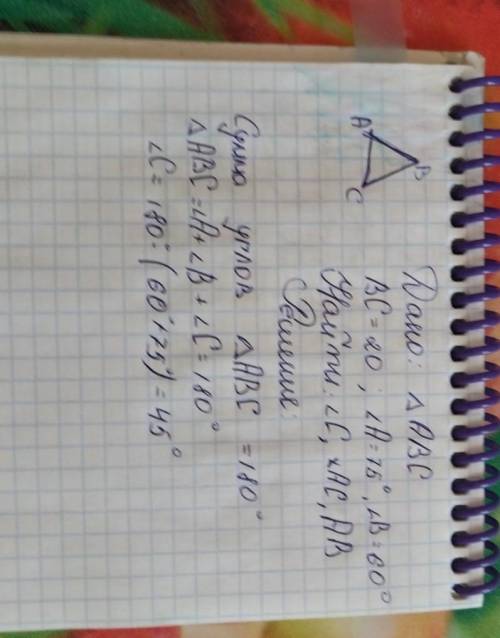 Дано: △ABC
BC = 20; ∠A = 75°, ∠B = 60°
Найти: ∠C, AC, AB
Решение:
B
A
C
Сумма углов △ABC = 180°
△ABC = ∠A + ∠B + ∠C = 180°
∠C = 180° - (60° + 75°) = 45°